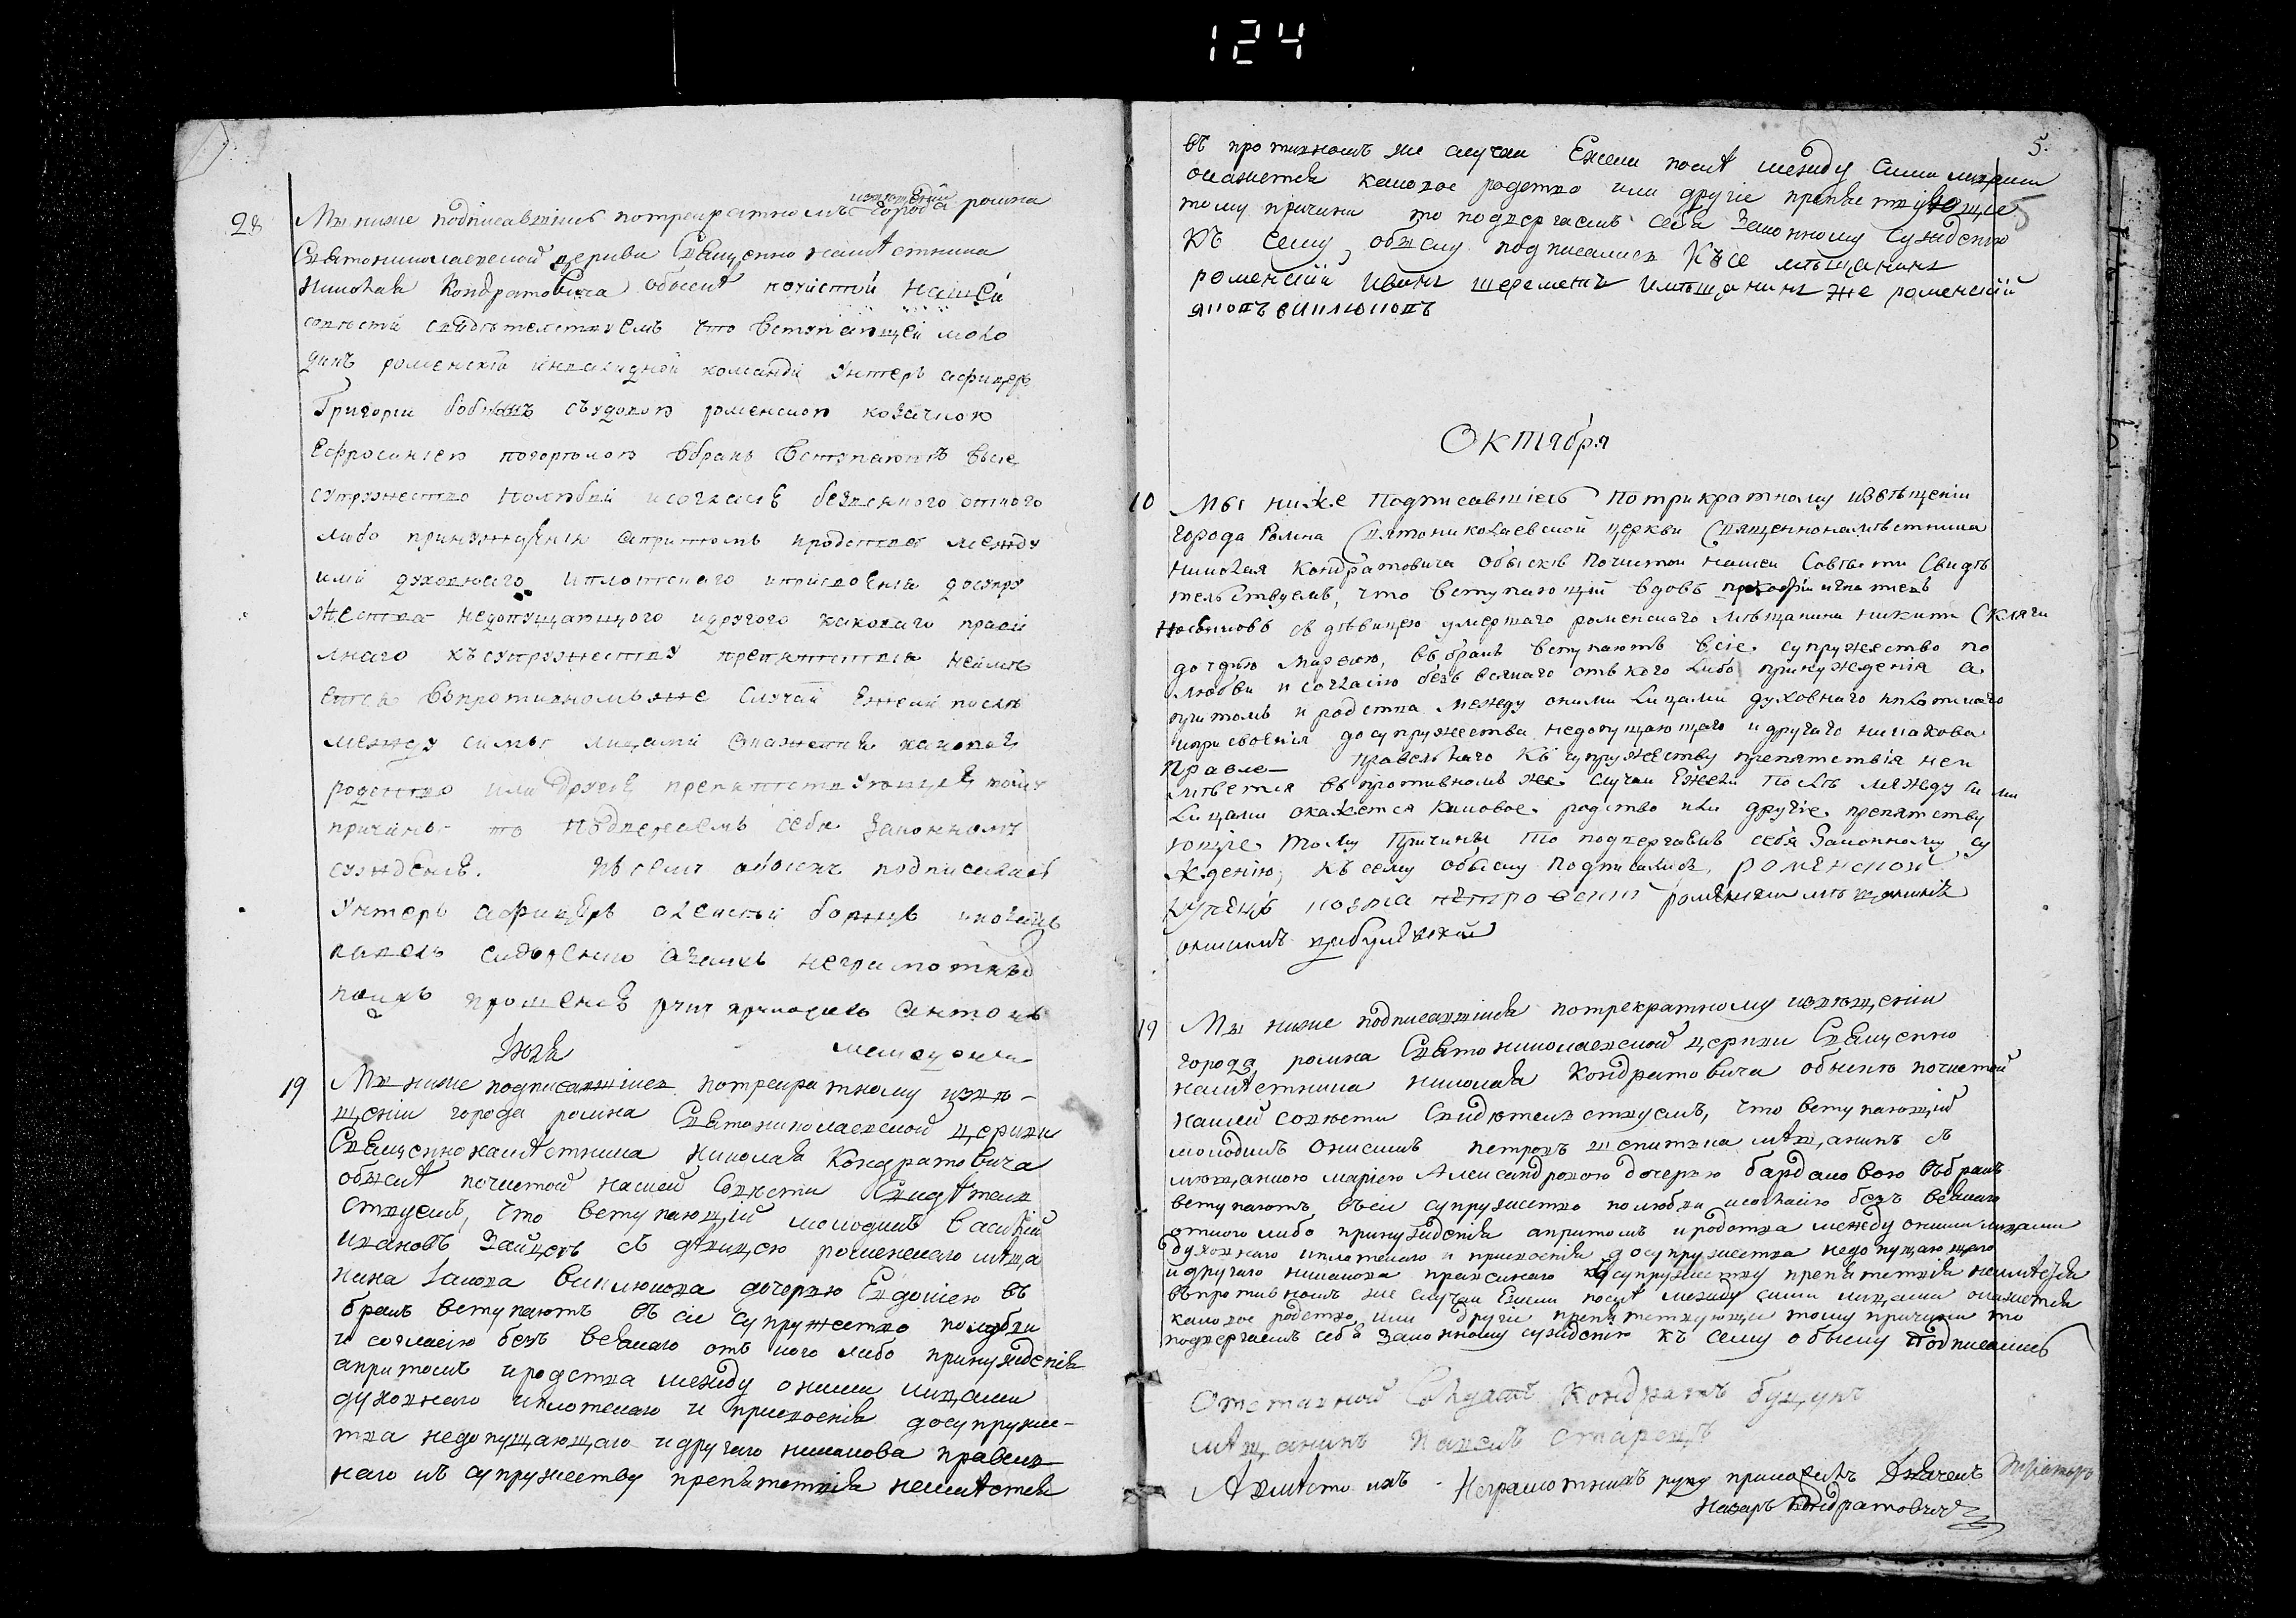 124
5.
28
Мы ниже подписавшиись потрекратномъ извѣщеніи города ромна
Святониколаевской церкви Священно намѣстника
Николая Кондратовича обыскѣ почистой нашей
совѣсти свидѣтелствуемъ что вступающей моло
дикъ роменскій инвалидной команди унтеръ афицеръ
Григорій съудовою роменскою козачкою
Ефросиніею вбракъ вступаютъ всіе
супружество полюбви исогласіѣ безвсякого откого
либо принужденія апритомъ иродства между
ими духовнаго иплотскаго иприсвоенія досупру
жества недопущающого идругого каковаго прави
лнаго къ супружеству препятствія неимѣ
ется Впротивномъ же случаи Ежели послѣ
между симы лицами окажется каковое
родство или другіе препятствующіе тому
причины то подвергаемъ себя законному
сужденію. Ксему обыску подписались
Унтеръ афицеръ Алексѣй
павелъ сидоренко неграмотных
поихъ прошенію руку приложилъ Антонъ
Іюля
19
Мы ниже подписавшіися потрекратному извѣ-
щеніи города ромна Святониколаевской церкви
Священнонамѣстника Николая Кондратовича
обыскѣ почистой нашей совѣсти Свидѣтел
ствуемъ, что вступающій молодикъ Василій
Ивановъ Зайцевъ съ дѣвицею роменскаго мѣща
нина Якова Винлюкова дочерю Евдокіею въ
бракъ вступаютъ въ сіе супружество полюбви
и согласію безъ всякаго отъ кого либо принужденія
апритомъ иродства между оними лицами
духовнаго иплотскаго и присвоенія досупруже-
тва недопущающаго идругаго никакова правел-
наго къ супружеству препятствія неимѣется
въ противномъ же случаи Ежели послѣ между сими лицами
окажется каковое родство или другіе препятствующіе
тому причини то подвергаемъ себя Законному Сужденію
Къ сему обыску подписались Къ се мѣщанинъ
роменскій Иванъ шереметъ имѣщанинъ же роменскій
Октября
10
Мы ниже Подписавшіесь Потрикратному извѣщеніи
города Ромна Святониколаевской церкви Священнонамѣстника
Николая Кондратовича обыскѣ Почистой нашей Совѣсти Свидѣ
тельствуемъ, что вступающій вдовъ
съ дѣвицею умершаго роменскаго мѣщанина Никити Скляри
дочерью Марѳою, въ бракъ вступаютъ всіе супружество по
любви и согласію безъ всякаго отъ кого либо принужденія а
притомъ и родства между оними лицами духовнаго иплотскаго
иприсвоенія до супружества недопущающаго идругаго никакова
Правле- правельнаго къ супружеству препятствія неи
мѣется въ противномъ же случаи Ежели Послѣ между си ми
лицами окажется каковое родство или другіе препятству
ющіе тому Причины То подвергаемъ себя Законному су
жденію, къ сему обыску Подписались роменской
купецъ мѣщанинъ
19
Мы ниже подписавшіися потрекратному извѣщеніи
города ромна Святониколаевской церкви Священно
намѣстника Николая Кондратовича обыскѣ почистой
нашей совѣсти Свидѣтелствуемъ, что вступающій
молодикъ Онисимъ Петровъ мѣщанинъ съ
мѣщанкою маріею Александровою дочерю вбракъ
вступаютъ въсіе супружество полюбви исогласію безъ всякаго
откого либо принужденія апритомъ иродства между оними лицами
духовнаго иплотскаго и присвоенія досупружества недопущающаго
идругаго никакова правелнаго къ супружеству препятствія неимѣется
въпротивномъ же случаи Ежели послѣ между сими лицами окажется
каковое родство или другіе препятствующіе тому причини то
подвергаемъ себя Законному сужденію къ сему обыску Подписались
Отставной Солдатъ Кондратъ
мѣщанинъ Павелъ Старецъ
Авмѣсто ихъ Неграмотнихъ руку приложилъ Дьячекъ
Назаръ Кондратовичъ